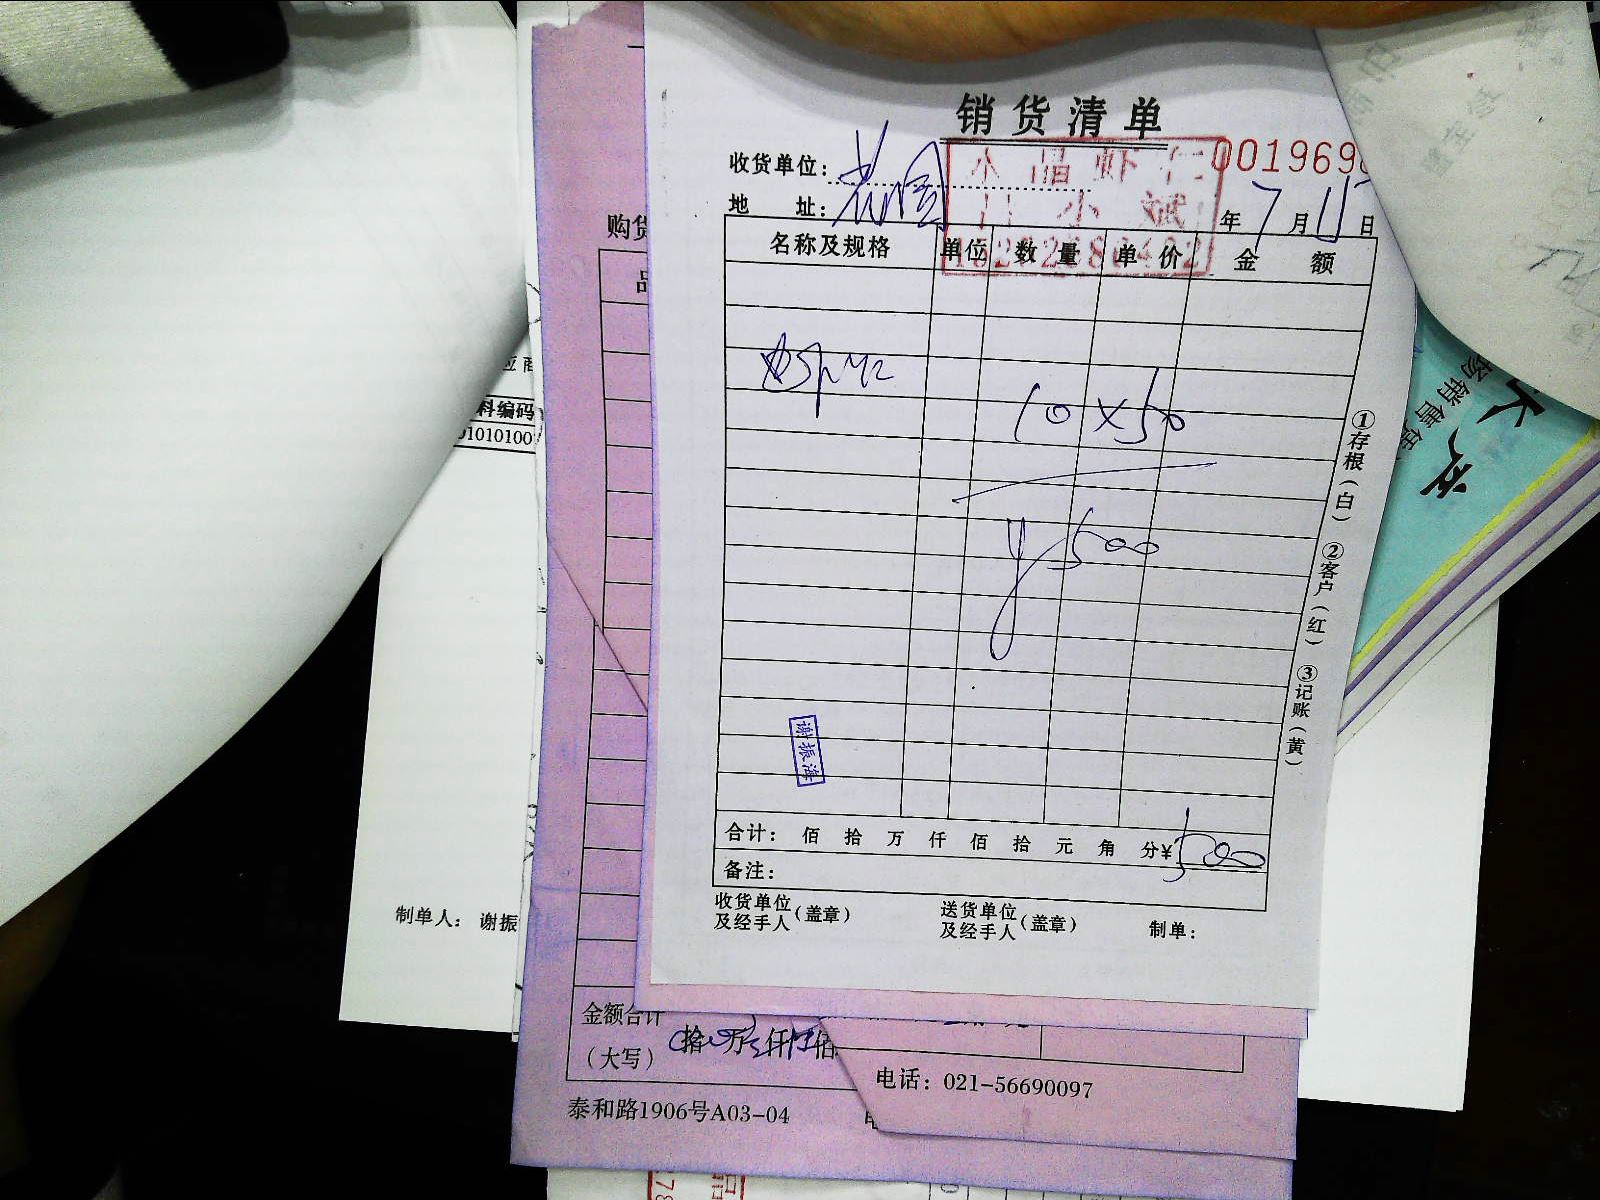 销货清单
001969
收货单位：
水晶虾仁
小斌
地 址：
年 7 月 11 日
名称及规格 单位 数量 单价 金额
虾仁
10×50
¥500
谢振海
合计： 佰 拾 万 仟 佰 拾 元 角 分¥ 500
备注：
收货单位
及经手人（盖章）
送货单位
及经手人（盖章）
制单：
①存根（白） ②客户（红） ③记账（黄）
购货
品
应商
料编码
制单人： 谢振
金额合计
（大写）
拾 万 仟 佰
电话：021-56690097
泰和路1906号A03-04
场销售